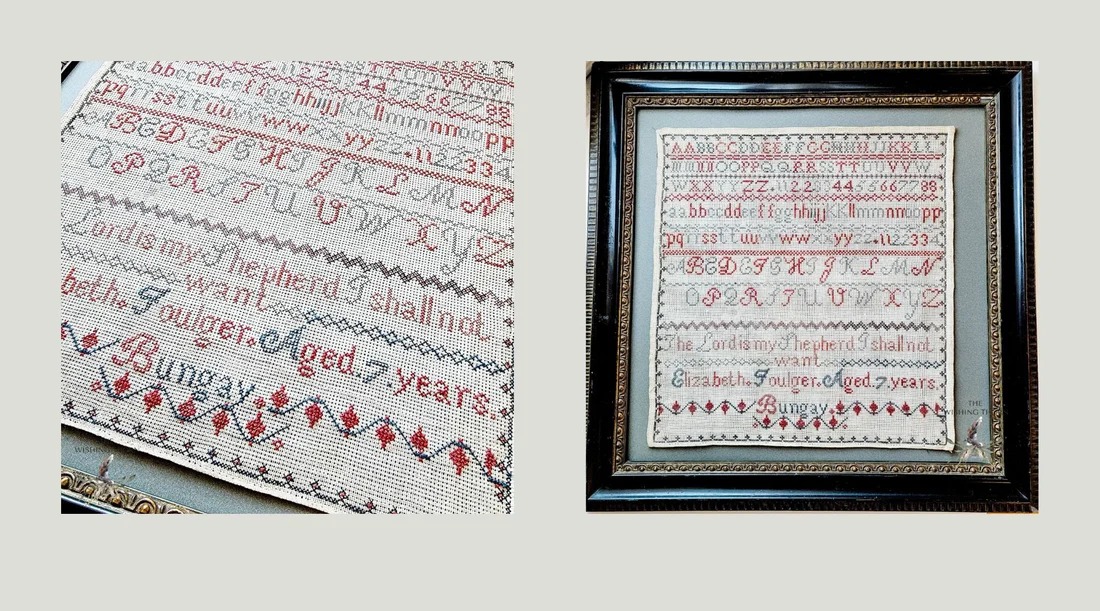 pqrrssttuuvvwwxxyyzz.1122334
ABCDEFGHIJKLMN
OPQRSTUVWXYZ
Lord is my Shepherd I shall not
want
beth. Foulger. Aged 7 years.
Bungay
AABBCCDDEEFFGGHHIIJJKKLL
WXXYYZZ.112233445566778
aabbccddeeffgghhiijjkkllmmnnoopp
pqrrssttuuvvwwxxyyzz.1122334
ABCDEFGHIJKLMN
OPQRSTUVWXYZ
The Lord is my Shepherd I shall not
want
Elizabeth. Foulger. Aged. 7. years.
Bungay.
THE